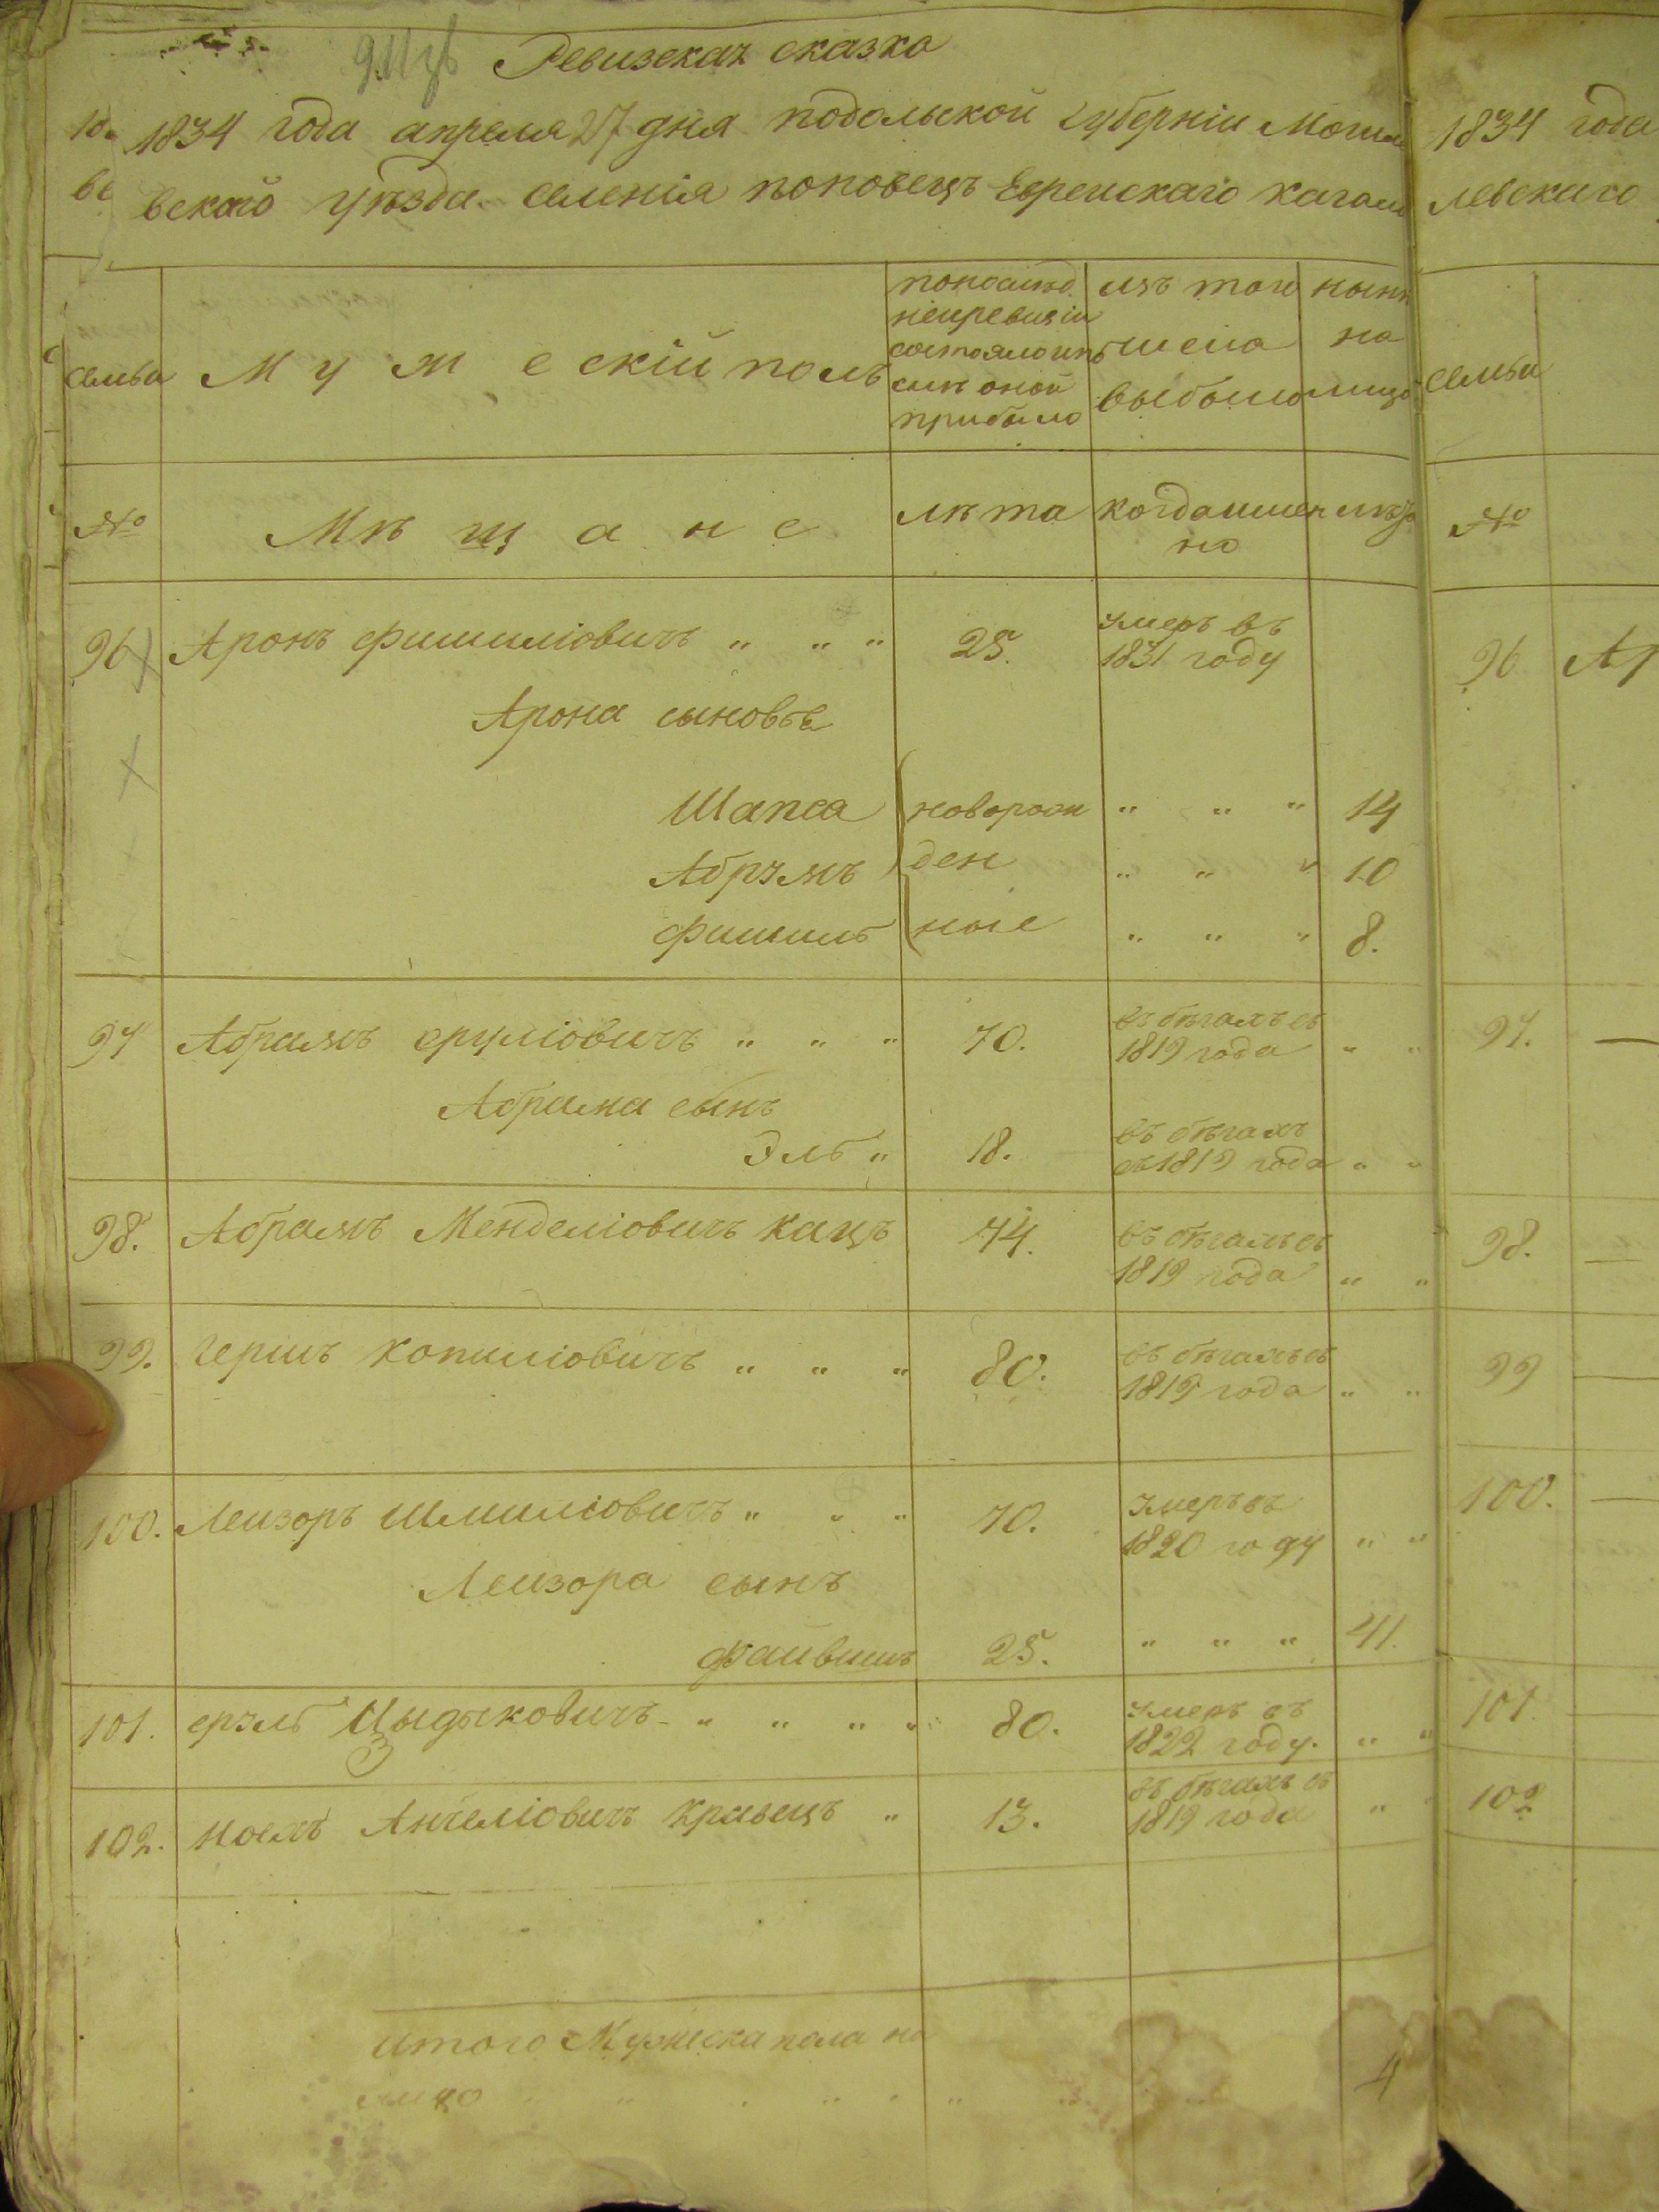 Ревизская сказка
1834 года апреля 27 дня подольской губерніи Могил
1834 года
вского уѣзда селенія поповецъ Евреискаго кагала
левскаго
семьи
Мужескій полъ
попослѣд
неиревизіи
состоялоипо
слѣ оной
прибыло
изъ того
числа
выбыло
нынѣ
на
лицо
семьи
№
Мѣщане
лѣта
когдаимен
но
лѣта
№
96
Аронъ Фишиліовичъ " " "
25.
умеръ въ
1831 году
96
Ар
Арона сыновья
Шапса
новорож
" " "
14
Абрумъ
ден
" " "
10
Фишиль
ные
" " "
8.
97
Абрамъ сруліовичъ " " "
70.
въ бѣгахъ съ
1819 года
" "
97.
Абрама сынъ
Эль "
18.
въ бѣгахъ
съ1819 года
" "
98.
Абрамъ Менделіовичъ кацъ
74.
въ бѣгахъ съ
1819 года
" "
98.
99.
гершъ копиліовичъ " " "
80.
въ бѣгахъ съ
1819 года
" "
99
100.
Леизоръ Шмиліовичъ " " "
70.
умеръ въ
1820 году
" "
100.
Леизора сынъ
файвишъ
25.
" " "
41.
101.
сруль Цыдыковичъ " " " "
80.
умеръ въ
1822 году.
" "
101.
102.
Ноехъ Анчеліовичъ кравецъ "
13.
въ бѣгахъ съ
1819 года
"
102
итого Мужеска пола на
лицо " " " " "
4